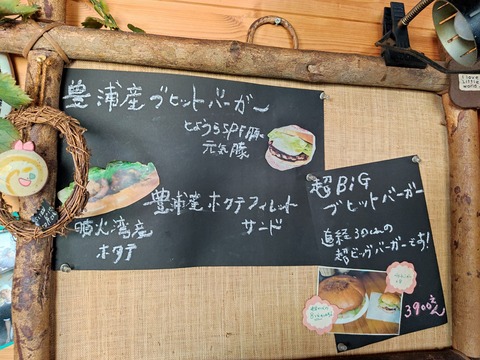 豊浦産ブヒットバーガー
とようらSPF豚
元気豚
豊浦産ホタテフィレット
サンド
噴火湾産
ホタテ
超BiG
ブヒットバーガー
直径30cmの
超ビッグバーガーです!
3900えん
I love
Little
world